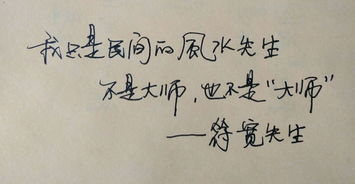 我只是民间的風水先生
不是大师，也不是“大师”
——符宽先生